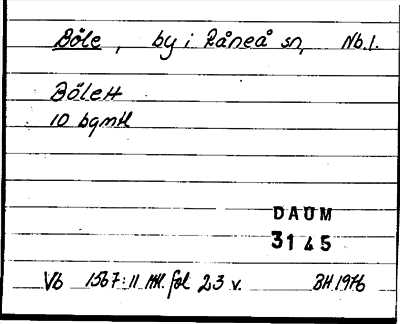 Böle, by i Råneå sn, Nb.l.
BöleH
10 bgmH
DAUM
3145
Vb 1567:11 HH. fol 23 v. BH 1976